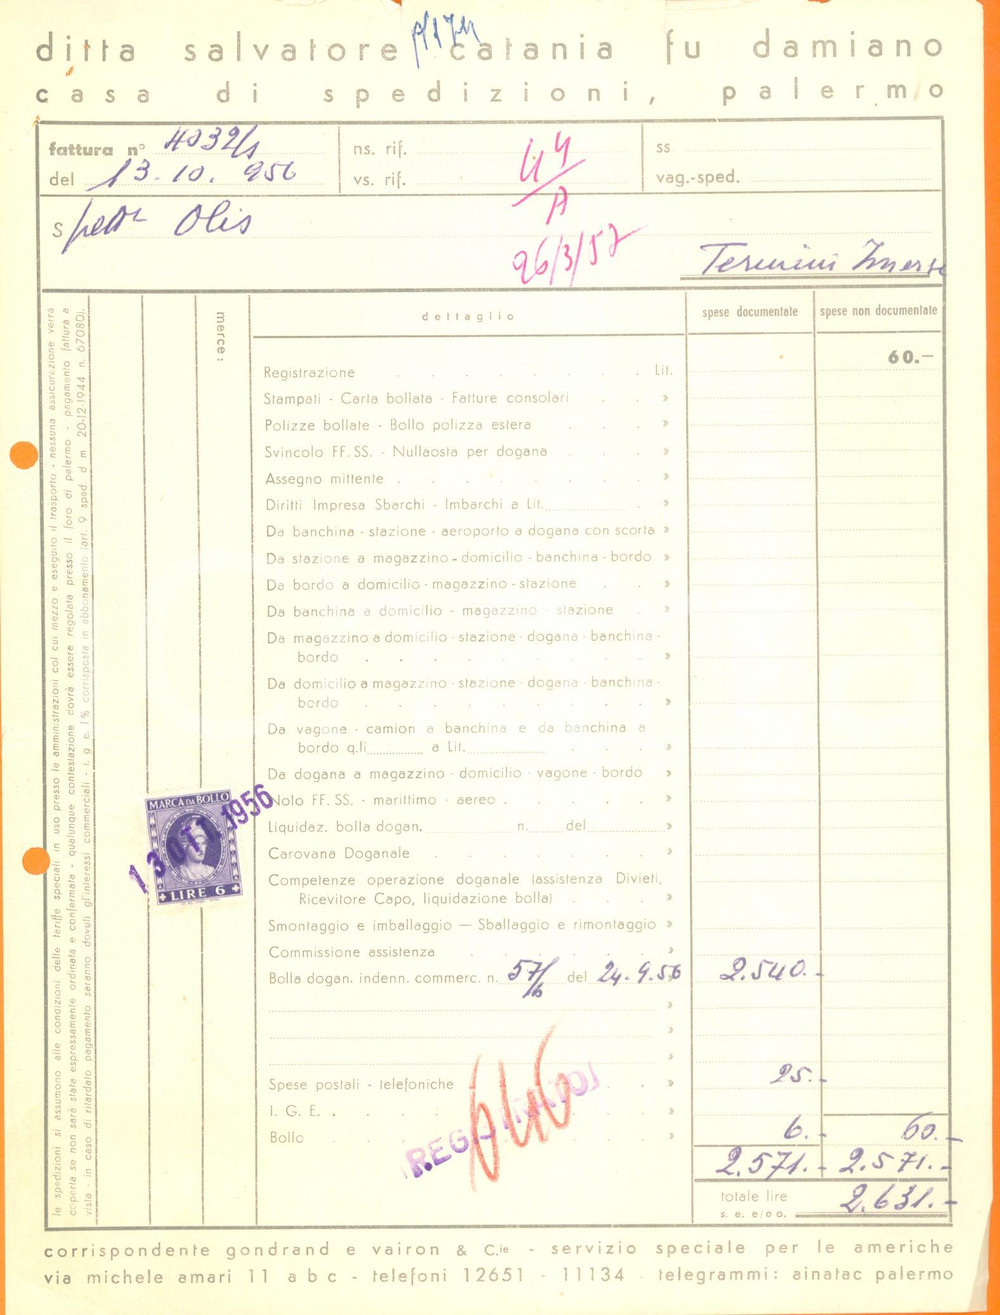 ditta salvatore catania fu damiano
casa di spedizioni, palermo
fattura n° 4032/1
del 13.10.956
ns. rif.
vs. rif.
44/A
26/3/57
ss
vag.-sped.
Spett. Olis
Termini Imerese
le spedizioni si assumono alle condizioni delle tariffe speciali in uso presso le amministrazioni col cui mezzo è eseguito il trasporto - nessuna assicurazione verrà
coperta se non sarà stata espressamente ordinata e confermata - qualunque contestazione dovrà essere regolata presso il foro di palermo - pagamento fattura a
vista - in caso di ritardato pagamento saranno dovuti gl'interessi commerciali - i. g. e. 1% corrisposta in abbonamento (art. 9 sped. d m. 20-12-1944 n. 67080).
merce:
dettaglio
spese documentate
spese non documentate
Registrazione . . . . . . . . Lit. 60.—
Stampati - Carta bollata - Fatture consolari . . »
Polizze bollate - Bollo polizza estera . . . »
Svincolo FF. SS. - Nullaosta per dogana . . »
Assegno mittente . . . . . . . »
Diritti Impresa Sbarchi - Imbarchi a Lit. . »
Da banchina - stazione - aeroporto a dogana con scorta »
Da stazione a magazzino - domicilio - banchina - bordo »
Da bordo a domicilio - magazzino - stazione . . »
Da banchina a domicilio - magazzino - stazione . »
Da magazzino a domicilio - stazione - dogana - banchina -
bordo . . . . . . . . »
Da domicilio a magazzino - stazione - dogana - banchina -
bordo . . . . . . . . »
Da vagone - camion a banchina e da banchina a
bordo q.li a Lit. . . . »
Da dogana a magazzino - domicilio - vagone - bordo »
Nolo FF. SS. - marittimo - aereo . . . . »
Liquidaz. bolla dogan. n. del »
Carovana Doganale . . . . . . »
Competenze operazione doganale (assistenza Divieti,
Ricevitore Capo, liquidazione bolla) . . . »
Smontaggio e imballaggio — Sballaggio e rimontaggio »
Commissione assistenza . . . . . »
Bolla dogan. indenn. commerc. n. 57/b del 24.9.56 2.540.-
»
»
»
Spese postali - telefoniche . . . » 25.-
I. G. E. . . . . . . . »
Bollo . . . . . . . » 6.- 60.-
2.571.- 2.571.-
totale lire 2.631.-
s. e. e/o o.
MARCA DA BOLLO
LIRE 6
13 OTT. 1956
646
corrispondente gondrand e vairon & C.ie - servizio speciale per le americhe
via michele amari 11 a b c - telefoni 12651 - 11134 - telegrammi: ainatac palermo